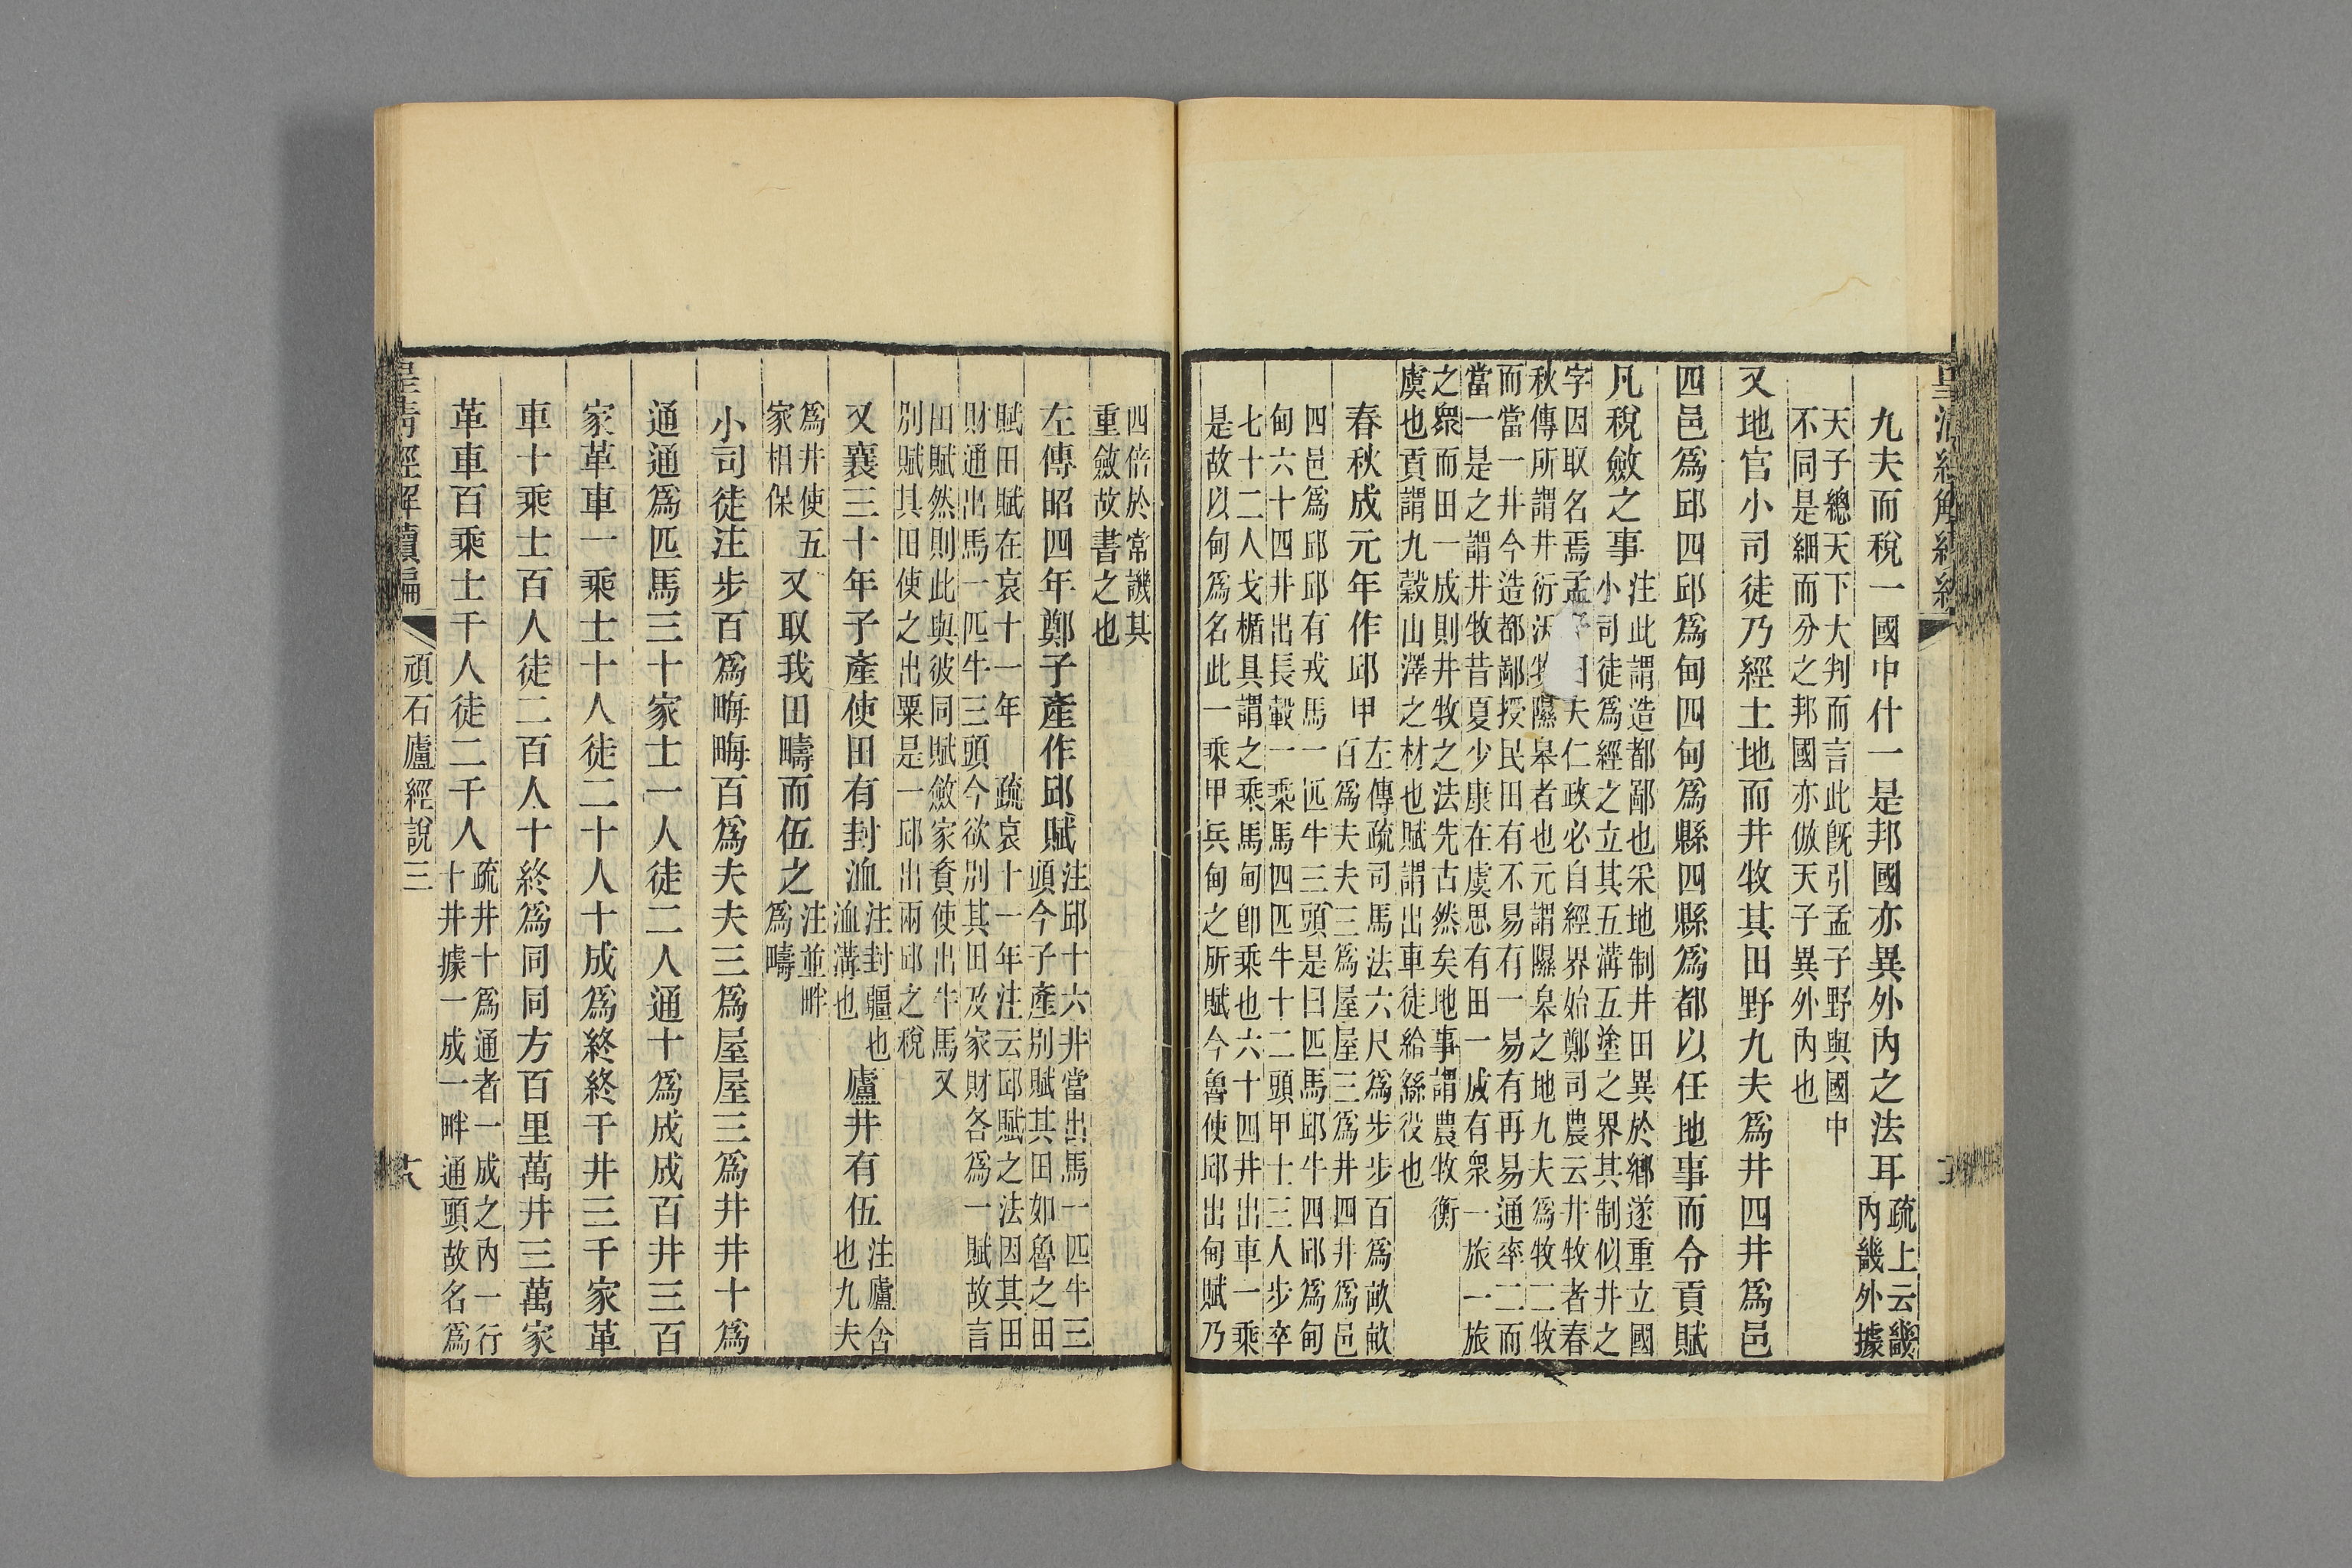 九夫而稅一國中什一是邦國亦異外內之法耳疏上云畿
內畿外據
天子總天下大判而言此既引孟子野與國中
不同是細而分之邦國亦倣天子異外內也
又地官小司徒乃經土地而井牧其田野九夫爲井四井爲邑
四邑爲邱四邱爲甸四甸爲縣四縣爲都以任地事而令貢賦
凡稅斂之事注此謂造都鄙也采地制井田異於鄉遂重立國
小司徒爲經之立其五溝五塗之界其制似井之
字因取名焉孟夫仁政必自經界始鄭司農云井牧者春
秋傳所謂井衍沃牧隰皋者也元謂隰皋之地九夫爲牧二牧
而當一井今造都鄙授民田有不易有一易有再易通率二而
當一是之謂井牧昔夏少康在虞思有田一成有眾一旅一旅
之眾而田一成則井牧之法先古然矣地事謂農牧衡
虞也貢謂九穀山澤之材也賦謂出車徒給繇役也
春秋成元年作邱甲左傳疏司馬法六尺爲步步百爲畝畝
百爲夫夫三爲屋屋三爲井四井爲邑
四邑爲邱邱有戎馬一匹牛三頭是曰匹馬邱牛四邱爲甸
甸六十四井出長轂一乘馬四匹牛十二頭甲士三人步卒
七十二人戈楯具謂之乘馬甸卽乘也六十四井出車一乘
是故以甸爲名此一乘甲兵甸之所賦今魯使邱出甸賦乃
四倍於常譏其
重斂故書之也
左傳昭四年鄭子產作邱賦注邱十六井當出馬一匹牛三
頭今子產別賦其田如魯之田
賦田賦在哀十一年　疏哀十一年注云邱賦之法因其田
財通出馬一匹牛三頭今欲別其田及家財各爲一賦故言
田賦然則此與彼同賦斂家資使出牛馬又
別賦其田使之出粟是一邱出兩邱之稅
又襄三十年子產使田有封洫注封疆也
洫溝也
廬井有伍注廬舍
也九夫
爲井使五
家相保
又取我田疇而伍之注並畔
爲疇
小司徒注步百爲畮畮百爲夫夫三爲屋屋三爲井井十爲
通通爲匹馬三十家士一人徒二人通十爲成成百井三百
家革車一乘士十人徒二十人十成爲終終千井三千家革
車十乘士百人徒二百人十終爲同同方百里萬井三萬家
革車百乘士千人徒二千人疏井十爲通者一成之內一行
十井據一成一畔通頭故名爲
皇清經解續編　頑石廬經說三